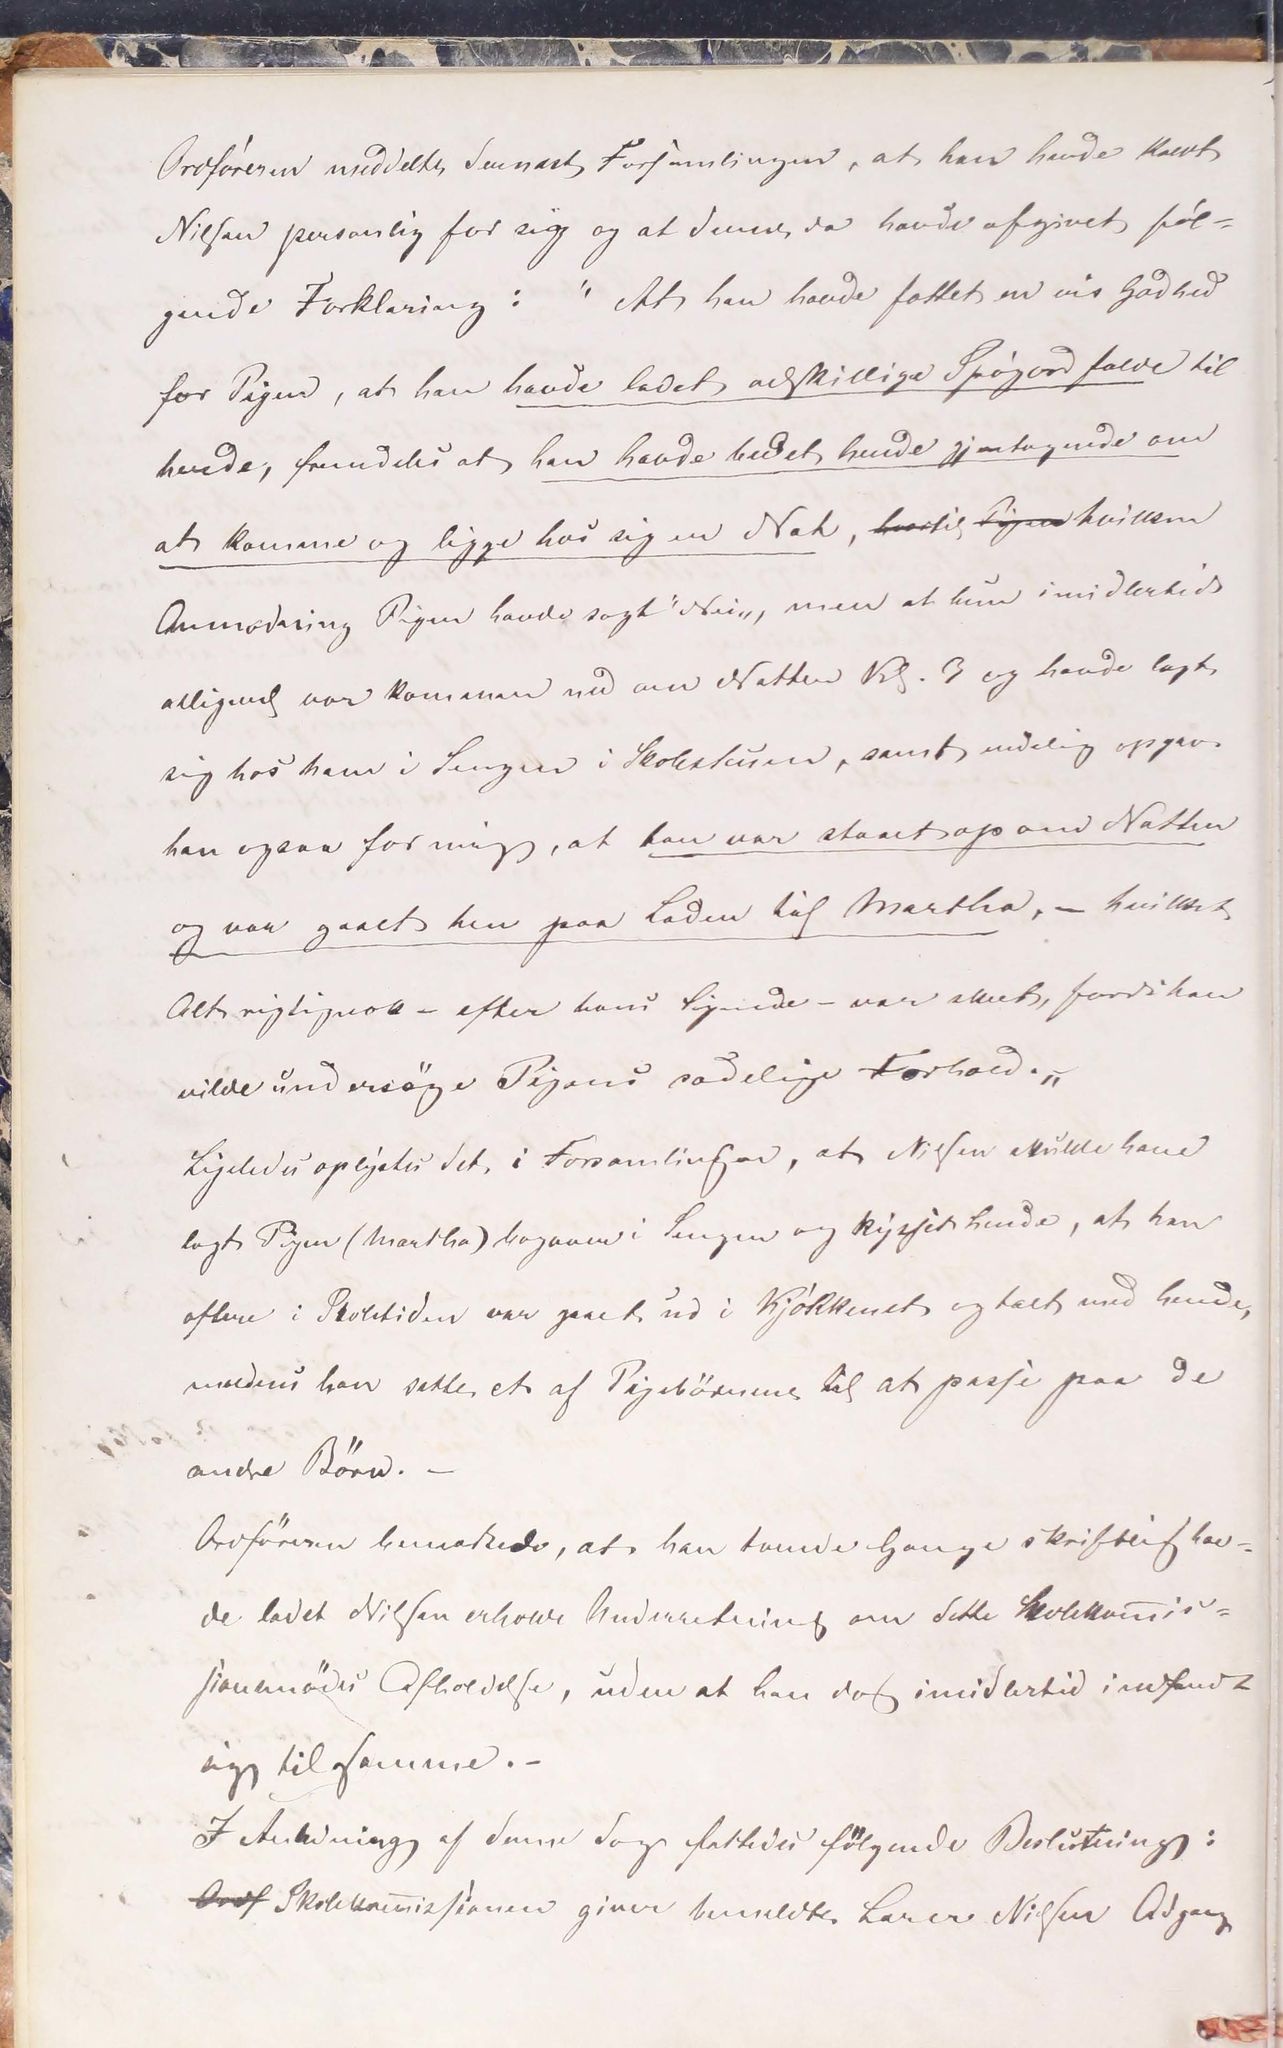 Ordføreren meddelte dernæst Forsamlingen, at han havde kaldt
Nilsen personlig for sig og at denne da havde afgivet føl-
gende Forklaring: "At han havde fattet en vis Godhed
for Pigen, at han havde ladet adskillige Spøgord falde til
hende, fremdeles at han havde bedet hende gjentagende om
at komme og ligge hos sig en Nat, hvortil Pigen hvilken
Anmodning Pigen havde sagt "Nei", men at hun imidlertid
alligevel var kommen ned om Natten Kl. 3 og havde lagt
sig hos ham i Sengen i Skolestuen, samt endelig opgav
han ogsaa for mig, at han var staaet op om Natten
og var gaaet hen paa Laden til Martha, - hvilket
Alt rigtignok - efter hans Sigende - var skeet, fordi han
vilde undersöge Pigens sædelige Forhold."
Ligeledes oplystes det i Forsamlingen, at Nilsen skulde have
lagt Pigen (Martha) bagover i Sengen og kysset hende, at han
oftere i Skoletiden var gaaet ud i Kjøkkenet og talt med hende,
medens han satte et af Pigebörnene til at passe paa de
andre Börn. -
Ordföreren bemærkede, at han tvende Gange skriftlig hav-
de ladet Nilsen erholde Underretning om dette Skolekommis-
sionsmödes Afholdelse, uden at han dog imidlertid indfandt
sig til samme. -
I Anledning af denne Sag fattedes fölgende Beslutning:
Ordf Skolekommissionen giver bemeldte Lærer Nilsen Adgang